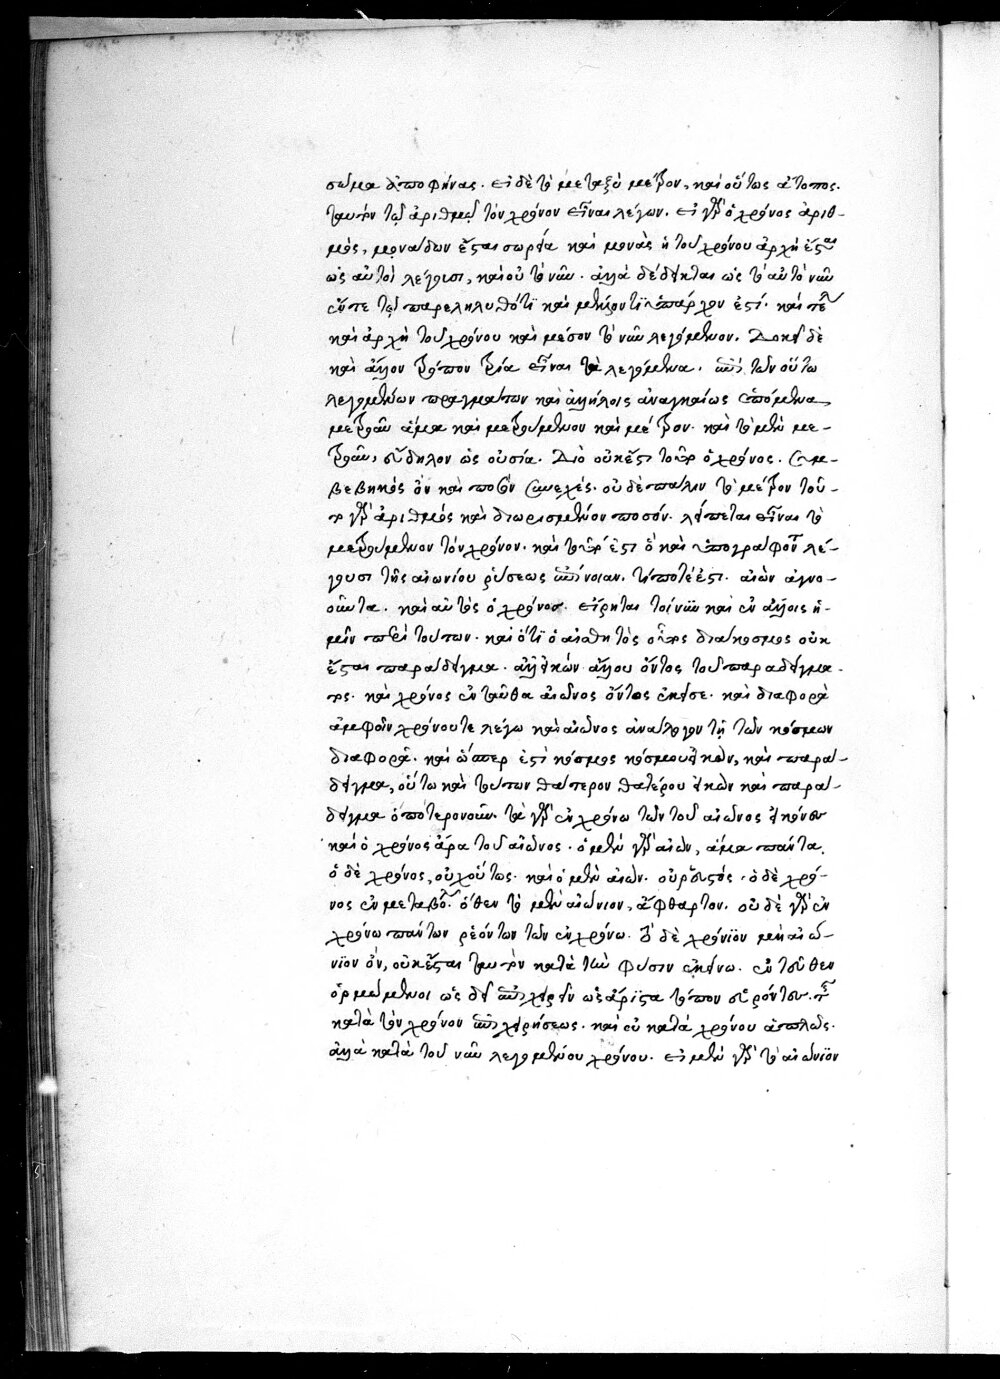 σῶμα ἀποφήνας. εἰ δὲ τὸ μεταξὺ μέτρον, καὶ οὕτως ἄτοπος.
ταυτὸν τῷ ἀριθμῷ τὸν χρόνον εἶναι λέγων. εἰ γὰρ ὁ χρόνος ἀριθ-
μός, μονάδων ἔσται σωρεία καὶ μονὰς ἡ τοῦ χρόνου ἀρχὴ ἔσται
ὡς αὐτοὶ λέγουσι, καὶ οὐ τὸ νῦν. ἀλλὰ δέδεικται ὡς τὸ αὐτὸ νῦν
ἔν τε τῷ παρεληλυθότι καὶ μέλλοντι ὑπάρχον ἐστί. καὶ
καὶ ἀρχὴ τοῦ χρόνου καὶ μέσον τὸ νῦν λεγόμενον. Δοκεῖ δὲ
καὶ ἄλλον τρόπον τρία εἶναι τὰ λεγόμενα. ἐπὶ τῶν οὕτω
λεγομένων πραγμάτων καὶ ἀλλήλοις ἀναγκαίως ἑπόμενα
μετροῦν ἅμα καὶ μετρούμενον καὶ μέτρον. καὶ τὸ μὲν με-
τροῦν, εὔδηλον ὡς οὐσία. Διὸ οὐκ ἔστι τοῦτο ὁ χρόνος. συμ-
βεβηκὸς ὂν καὶ ποσὸν συνεχές. οὐδὲ πάλιν τὸ μέτρον τοῦ-
το γὰρ ἀριθμὸς καὶ διωρισμένον ποσόν. λείπεται εἶναι τὸ
μετρούμενον τὸν χρόνον. καὶ τοῦτό ἐστι ὃ καὶ ὑπογράφον λέ-
γουσι τῆς αἰωνίου ῥύσεως ἐπίνοιαν. τί ποτέ ἐστι. αἰὼν ἀγνο-
οῦντα. καὶ αὐτὸς ὁ χρόνος. εἴρηται τοίνυν καὶ ἐν ἄλλοις ἡ-
μῖν περὶ τούτων. καὶ ὅτι ὁ αἰσθητὸς οὗτος διάκοσμος οὐκ
ἔσται παράδειγμα. ἀλλ' εἰκὼν ἄλλου ὄντος τοῦ παραδείγμα-
τος. καὶ χρόνος ἐνταῦθα αἰῶνος ὄντος ἐκεῖσε. καὶ διαφορὰ
ἀμφοῖν χρόνου τε λέγω καὶ αἰῶνος ἀνάλογον τῇ τῶν κόσμων
διαφορᾷ. καὶ ὥσπερ ἐστὶ κόσμος κόσμου εἰκών, καὶ παρά-
δειγμα, οὕτω καὶ τούτων θάτερον θατέρου εἰκὼν καὶ παρά-
δειγμα ὁποτερονοῦν. τὰ γὰρ ἐν χρόνῳ τῶν τοῦ αἰῶνος εἰκόνες
καὶ ὁ χρόνος ἄρα τοῦ αἰῶνος. ὁ μὲν γὰρ αἰών, ἅμα πάντα.
ὁ δὲ χρόνος, οὐχ οὕτως. καὶ ὁ μὲν αἰών. ὁ δὲ χρό-
νος ἐν μεταβολῇ. ὅθεν τὸ μὲν αἰώνιον, ἄφθαρτον. οὐδὲ γὰρ ἐν
χρόνῳ πάντων ῥεόντων τῶν ἐν χρόνῳ. τὸ δὲ χρόνιον μὴ αἰώ-
νιον ὄν, οὐκ ἔσται ταυτὸν κατὰ τὴν φύσιν ἐκείνῳ. ἐντεῦθεν
ὁρμώμενοι ὡς δεῖ ἐπιχειρεῖν ὡς ἄριστα τόπον εὑρόντες. τῆς
κατὰ τὸν χρόνον ἐπιχειρήσεως. καὶ οὐ κατὰ χρόνου ἁπλῶς.
ἀλλὰ κατὰ τοῦ νῦν λεγομένου χρόνου. εἰ μὲν γὰρ τὸ αἰώνιον